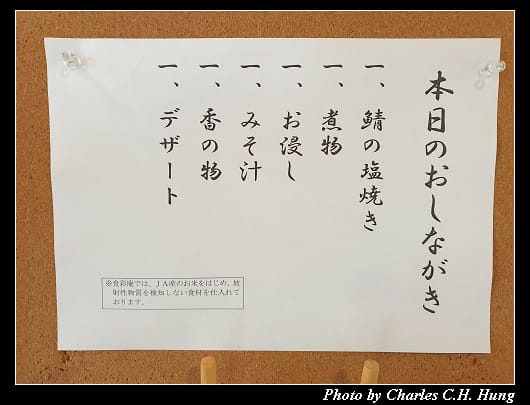 本日のおしながき
一、鯖の塩焼き
一、煮物
一、お浸し
一、みそ汁
一、香の物
一、デザート
※食彩庵では、ＪＡ産のお米をはじめ、放
射性物質を検知しない食材を仕入れて
おります。
Photo by Charles C.H. Hung